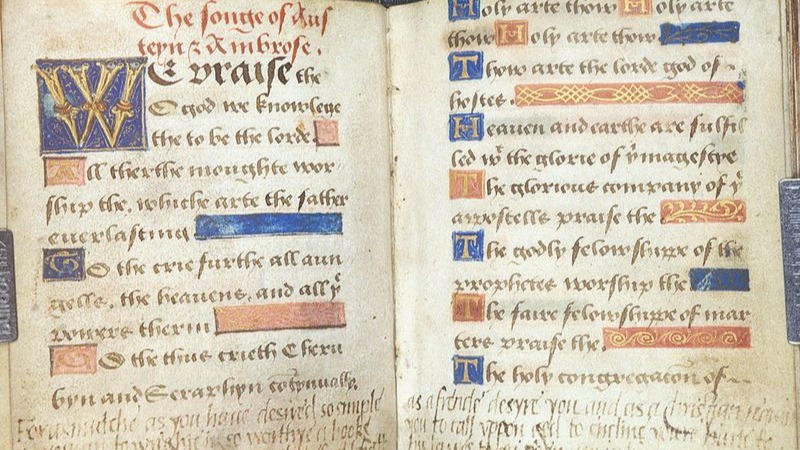 The songe of Aus
teyn & Ambrose.
WE praise the
O god we knowlege
the to be the lorde.
All therthe moughte wor
ship the, whiche arte the father
euerlasting
To the crie furthe all aun
gells, the heauens, and all yͤ
powers therin
To the thus crieth Cheru
byn and Seraphyn cōtynually.
Forasmutche as you have desired so simple
a woman to wrighte in so worthye a booke
Holy arte thow Holy arte
thow Holy arte thow
Thow arte the lorde god of
hostes.
Heauen and earthe are fulfil
led wᵗ the glorie of yͥ magestye
The glorious company of yͤ
appostells praise the
The godly felowshippe of the
prophetes worship the
The faire felowshippe of mar
ters praise the.
The holy congregacōn of
as a frende desyre you and as a christian
you to call uppon god to encline youre harte to